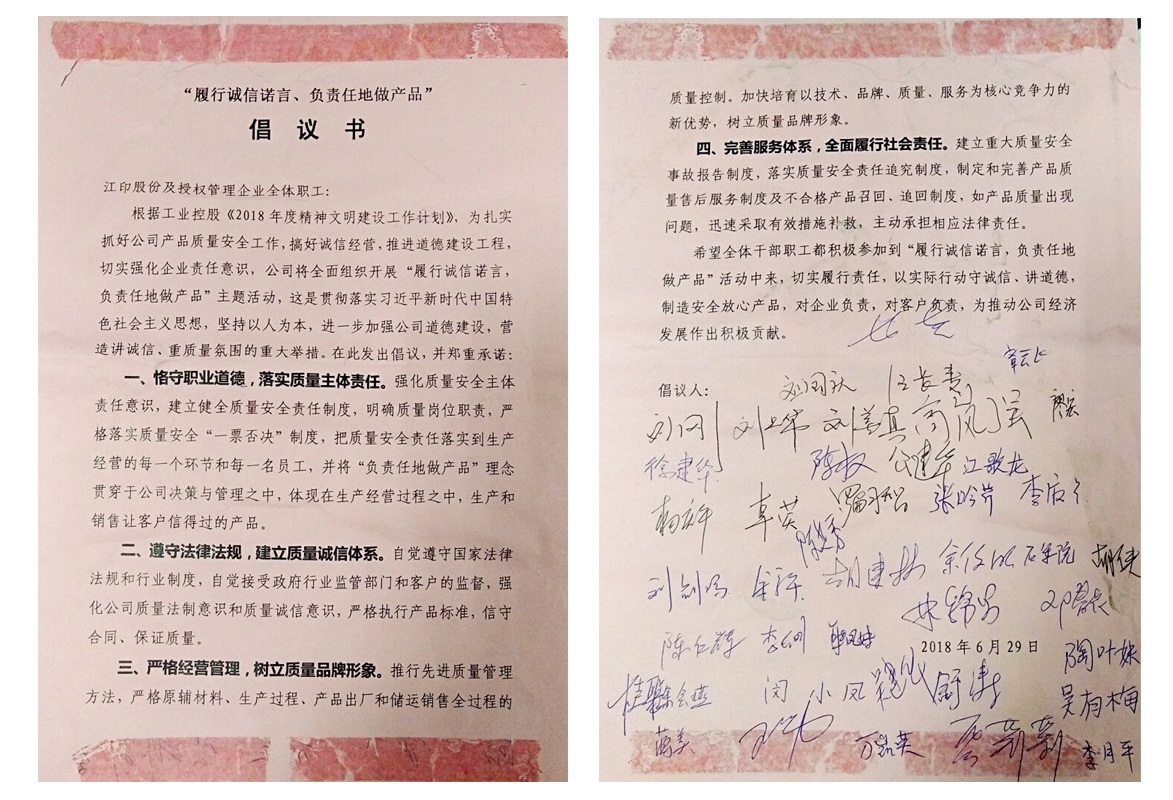 “履行诚信诺言、负责任地做产品”
倡 议 书
江印股份及授权管理企业全体职工：
根据工业控股《2018 年度精神文明建设工作计划》，为扎实
抓好公司产品质量安全工作，搞好诚信经营，推进道德建设工程，
切实强化企业责任意识，公司将全面组织开展“履行诚信诺言，
负责任地做产品”主题活动，这是贯彻落实习近平新时代中国特
色社会主义思想，坚持以人为本，进一步加强公司道德建设，营
造讲诚信、重质量氛围的重大举措。在此发出倡议，并郑重承诺：
一、恪守职业道德，落实质量主体责任。强化质量安全主体
责任意识，建立健全质量安全责任制度，明确质量岗位职责，严
格落实质量安全“一票否决”制度，把质量安全责任落实到生产
经营的每一个环节和每一名员工，并将“负责任地做产品”理念
贯穿于公司决策与管理之中，体现在生产经营过程之中，生产和
销售让客户信得过的产品。
二、遵守法律法规，建立质量诚信体系。自觉遵守国家法律
法规和行业制度，自觉接受政府行业监管部门和客户的监督，强
化公司质量法制意识和质量诚信意识，严格执行产品标准，信守
合同、保证质量。
三、严格经营管理，树立质量品牌形象。推行先进质量管理
方法，严格原辅材料、生产过程、产品出厂和储运销售全过程的
质量控制。加快培育以技术、品牌、质量、服务为核心竞争力的
新优势，树立质量品牌形象。
四、完善服务体系，全面履行社会责任。建立重大质量安全
事故报告制度，落实质量安全责任追究制度，制定和完善产品质
量售后服务制度及不合格产品召回、追回制度，如产品质量出现
问题，迅速采取有效措施补救，主动承担相应法律责任。
希望全体干部职工都积极参加到“履行诚信诺言，负责任地
做产品”活动中来，切实履行责任，以实际行动守诚信、讲道德，
制造安全放心产品，对企业负责，对客户负责，为推动公司经济
发展作出积极贡献。
倡议人：
徐建华 陈敏 江歌龙
张吟芳
胡建林 石学院
陈仁辉
2018 年 6 月 29 日
陶叶妹
闵小凤 舒涛
吴有梅
万凯英 李月平